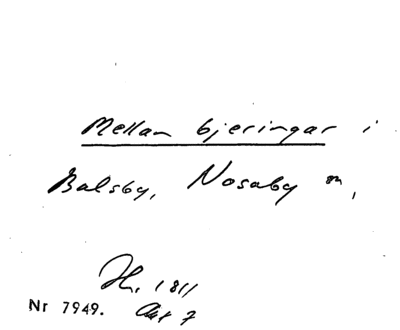 Mellan bjeringar i
Balsby, Nosaby m,
H. 1811
Nr 7949. Akt 7